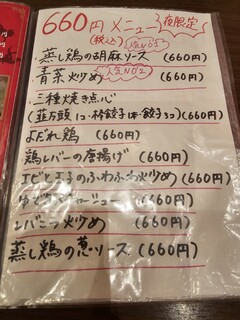 660円メニュー 夜限定
(税込) 人気NO1
蒸し鶏の胡麻ソース (660円)
青菜炒め 人気NO2 (660円)
三種焼き点心
(韮万頭1コ・棒餃子1本・餃子3コ) (660円)
よだれ鶏 (660円)
鶏レバーの唐揚げ (660円)
エビと玉子のふわふわ炒め (660円)
(660円)
レバニラ炒め (660円)
蒸し鶏の葱ソース (660円)